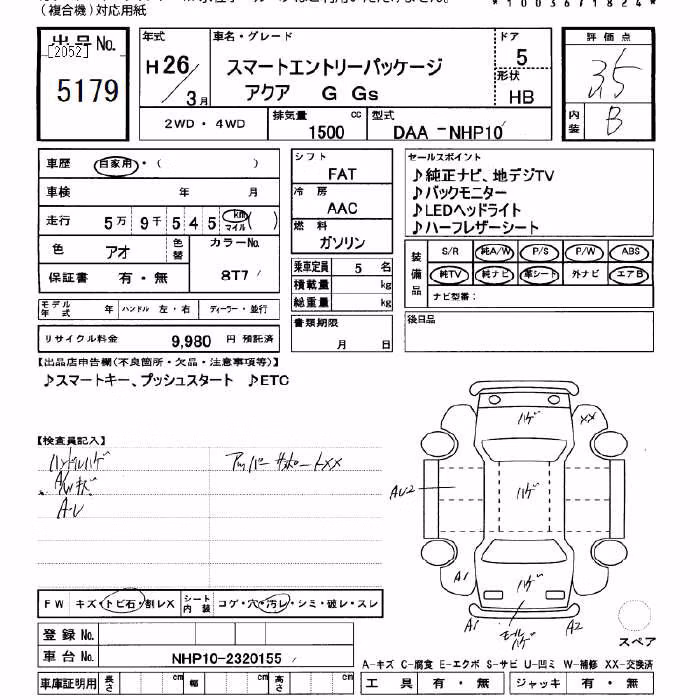 (複合機)対応用紙
*1003671824*
出品 No.
[2052]
5179
年式
H26/3月
車名・グレード
スマートエントリーパッケージ
アクア G Gs
ドア
5
形状
HB
評価点
3.5
内装
B
2WD・4WD
排気量
1500 cc
型式
DAA-NHP10
車歴 自家用・( )
車検 年 月
走行 5万 9千 5 4 5 km マイル ( )
色 アオ 色替
カラーNo.
8T7
保証書 有・無
モデル年式 年 ハンドル 左・右 ディーラー・並行
リサイクル料金 9,980 円 預託済
シフト
FAT
冷房
AAC
燃料
ガソリン
乗車定員 5 名
積載量 kg
総重量 kg
書類期限
月 日
セールスポイント
♪純正ナビ、地デジTV
♪バックモニター
♪LEDヘッドライト
♪ハーフレザーシート
装備品
S/R 純A/W P/S P/W ABS
純TV 純ナビ 革シート 外ナビ エアB
ナビ型番:
後日品
【出品店申告欄(不良箇所・欠品・注意事項等)】
♪スマートキー、プッシュスタート ♪ETC
【検査員記入】
ハンドルハゲ
A/Wキズ
A-U
アッパーサポートXX
ハゲ
XX
AU2
ハゲ
A1
ハゲ
A1
モールハゲ
A2
スペア
FW キズ・トビ石・割レX
シート内装 コゲ・穴・汚レ・シミ・破レ・スレ
登録 No.
車台 No. NHP10-2320155
車庫証明用 長さ cm 幅 cm 高さ cm
A-キズ C-腐食 E-エクボ S-サビ U-凹ミ W-補修 XX-交換済
工具 有・無 ジャッキ 有・無